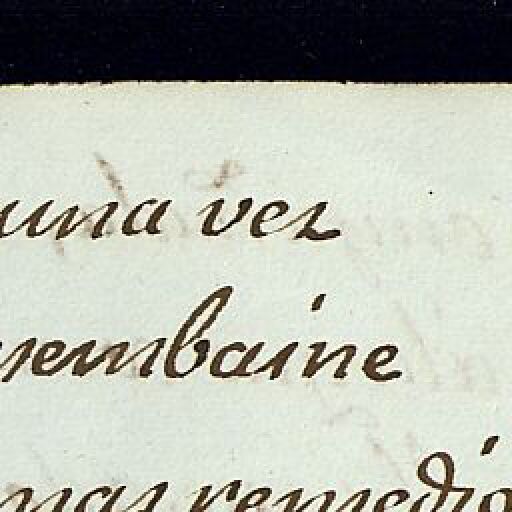 una vez
sembaine
mas remedio